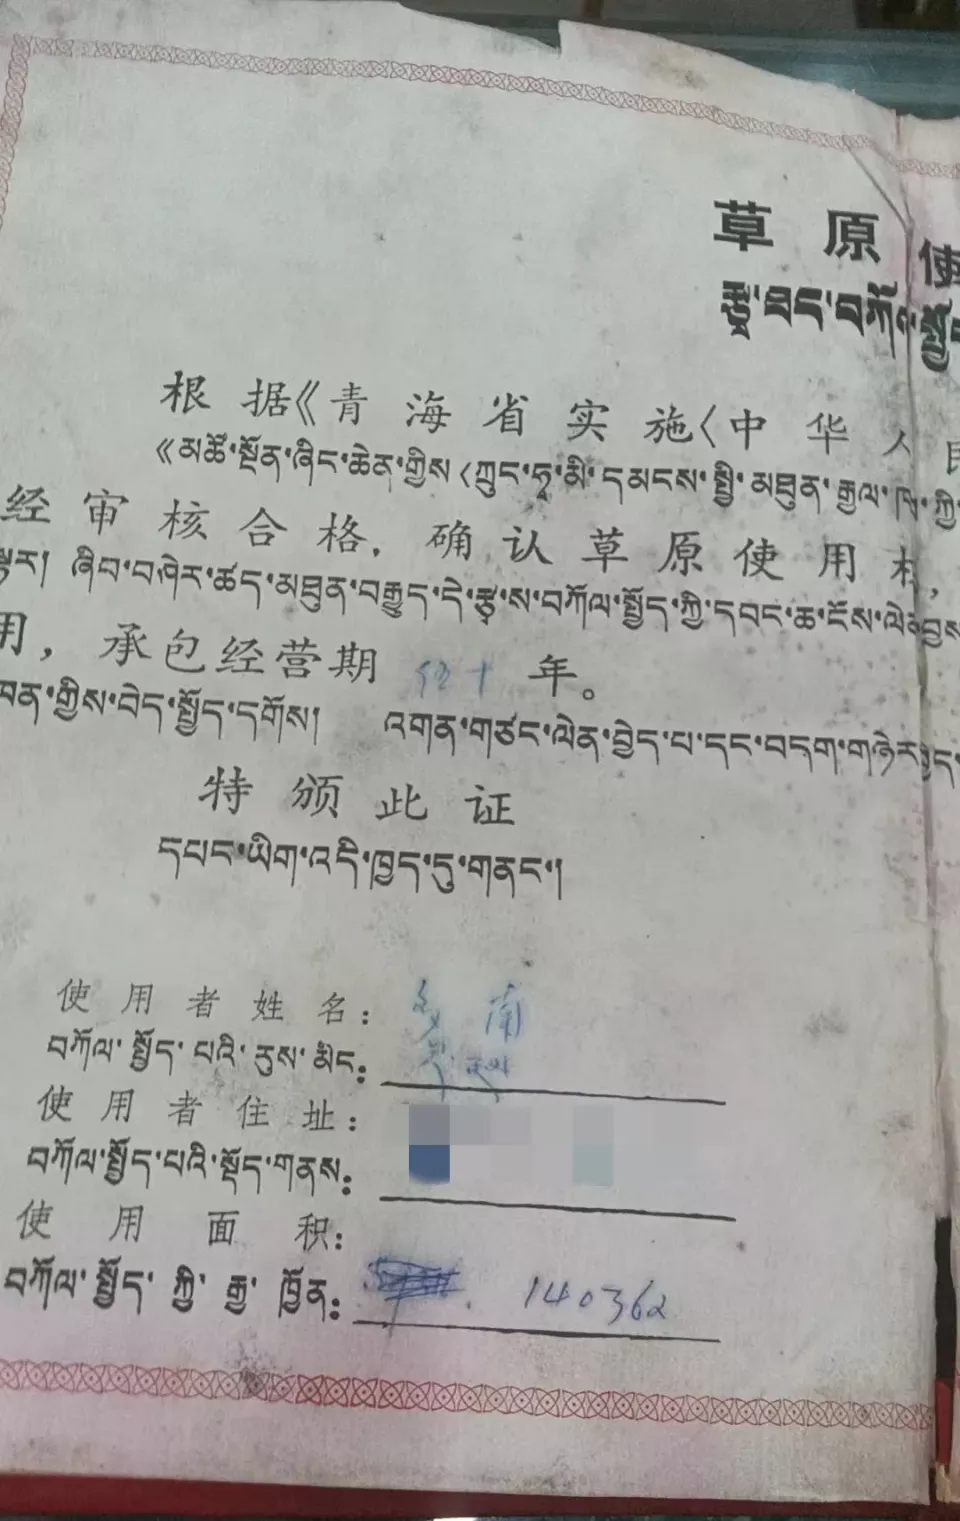 草原使
རྩྭ་ཐང་བཀོལ་སྤྱོད
根据《青海省实施〈中华人民
《མཚོ་སྔོན་ཞིང་ཆེན་གྱིས〈ཀྲུང་ཧྭ་མི་དམངས་སྤྱི་མཐུན་རྒྱལ་ཁབ་ཀྱི
经审核合格，确认草原使用权，
ལྟར། ཞིབ་བཤེར་ཚད་མཐུན་བརྒྱུད་དེ་རྩྭ་ས་བཀོལ་སྤྱོད་ཀྱི་དབང་ཆ་ངོས་ལེན་བྱས
用，承包经营期 年。
ཁན་གྱིས་བེད་སྤྱོད་དགོས། འགན་གཙང་ལེན་བྱེད་པ་དང་བདག་གཉེར་བྱེད་
特颁此证
དཔང་ཡིག་འདི་ཁྱད་དུ་གནང་།
使用者姓名： 南
བཀོལ་སྤྱོད་པའི་རུས་མིང：
使用者住址：
བཀོལ་སྤྱོད་པའི་སྡོད་གནས：
使用面积：
བཀོལ་སྤྱོད་ཀྱི་རྒྱ་ཁྱོན： 140362